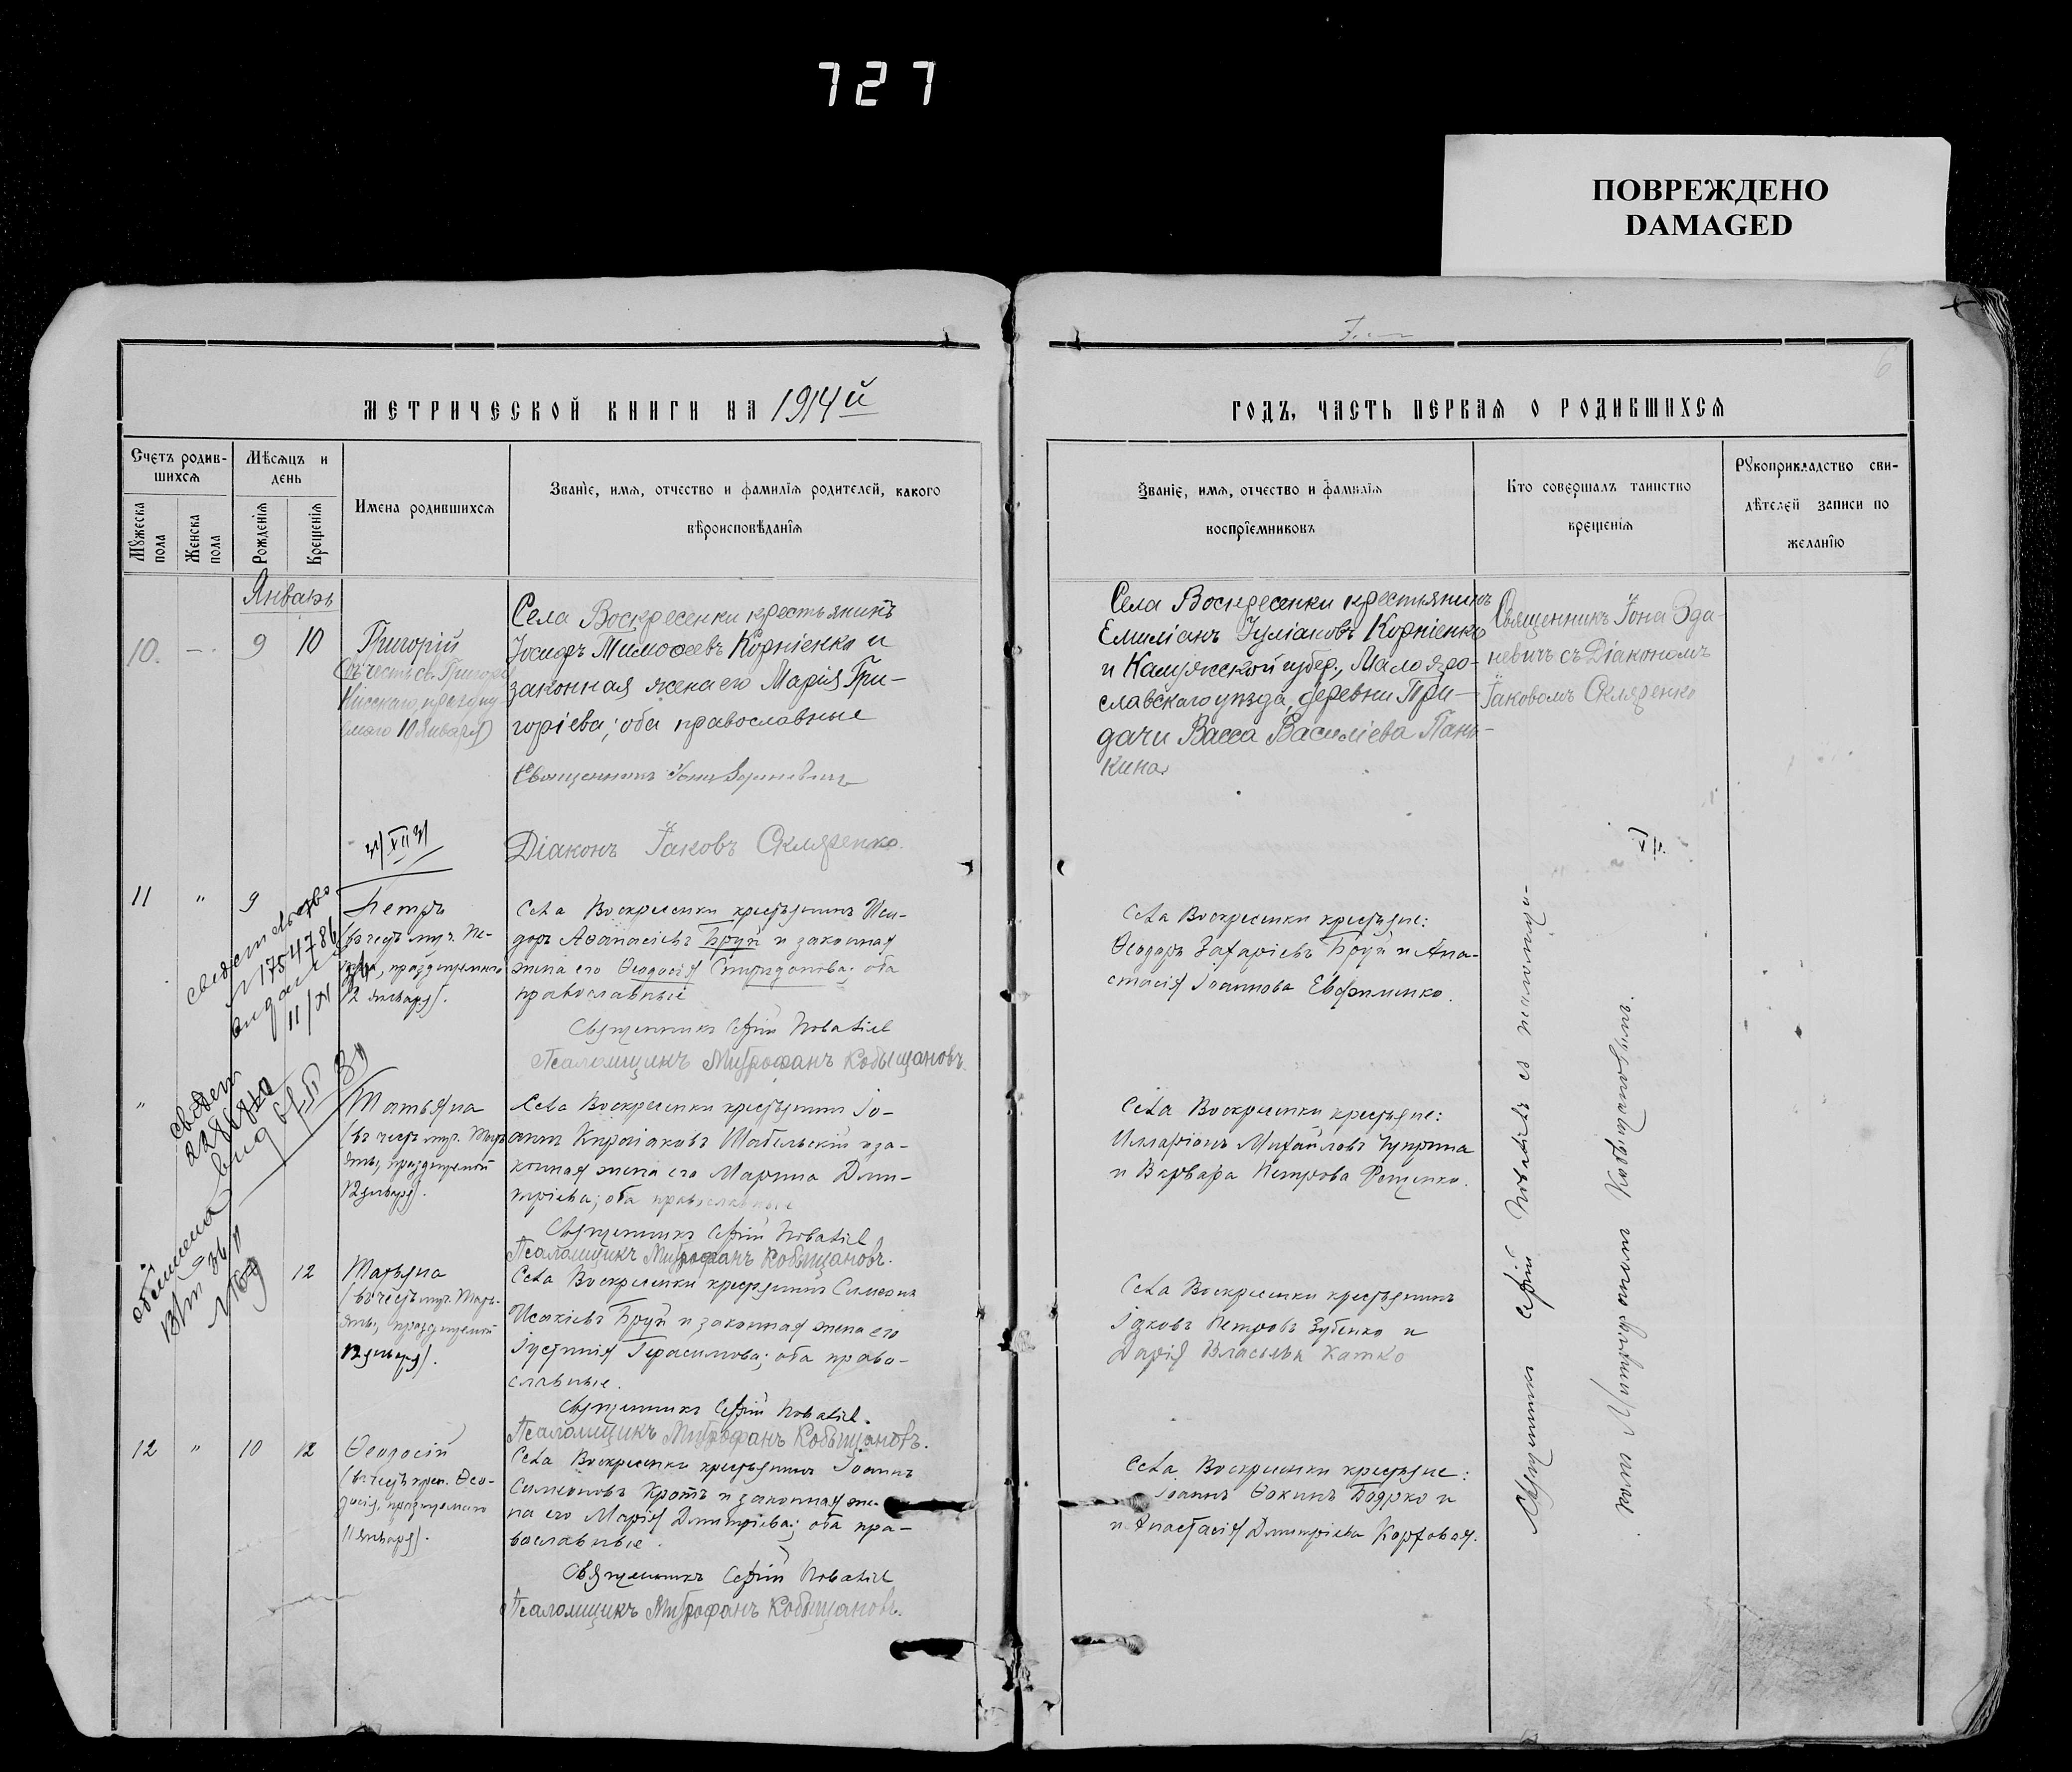 727
ПОВРЕЖДЕНО
DAMAGED
МЕТРИЧЕСКОЙ КНИГИ НА 1914й
ГОДЪ, ЧАСТЬ ПЕРВАЯ О РОДИВШИХСЯ
Счетъ родив-
шихся
Мѣсяцъ и
день
Мужеска
пола
Женска
пола
Рожденія
Крещенія
Имена родившихся
Званіе, имя, отчество и фамилія родителей, какого
вѣроисповѣданія
Званіе, имя, отчество и фамилія
воспріемниковъ
Кто совершалъ таинство
крещенія
Рукоприкладство сви-
дѣтелей записи по
желанію
Январь
10. — 9 10
Григорій
(въ честь св. Григорія
Нисскаго, праздну-
емаго 10 Января)
Села Воскресенки крестьянинъ
Іосифъ Тимоѳеевъ Корніенко и
законная жена его Марія Гри-
горіева; оба православные
Священникъ Іона Зданевичъ
Діаконъ Іаковъ Скляренко.
Села Воскресенки крестьянинъ
Емиліанъ Іуліановъ Корніенко
и Калужской губер., Малояро-
славскаго уѣзда, деревни При-
дачи Васса Василіева Пань-
кина
Священникъ Іона Зда-
невичъ съ Діакономъ
Іаковомъ Скляренко
11 " 9
Петръ
(въ честь муч. Пе-
тра, празднуемаго
12 января).
Села Воскресенки крестьянинъ Иси-
доръ Аѳанасіевъ Бруй и законная
жена его Ѳеодосія Спиридонова; оба
православные
Священникъ Сергій
Псаломщикъ Митрофанъ Кобыщановъ.
Села Воскресенки крестьяне:
Ѳеодоръ Захаріевъ Бруй и Ана-
стасія Іоаннова Евфименко.
свидетельство
№ 1754786
выдано
11/XI 31
"
Татьяна
(въ честь муч. Тать-
яны, празднуемой
12 января).
Села Воскресенки крестьянинъ Іо-
аннъ Киріаковъ Шабельскій и за-
конная жена его Марина Дми-
тріева; оба православные
Священникъ Сергій
Псаломщикъ Митрофанъ Кобыщановъ.
Села Воскресенки крестьяне:
Илларіонъ Михайловъ Чуприна
и Варвара Петрова Фещенко.
12
Татьяна
(въ честь муч. Тать-
яны, празднуемой
12 января).
Села Воскресенки крестьянинъ Симеонъ
Исакіевъ Бруй и законная жена его
Іустинія Герасимова; оба право-
славные.
Священникъ Сергій
Псаломщикъ Митрофанъ Кобыщановъ.
Села Воскресенки крестьянинъ
Іаковъ Петровъ Зубенко и
Дарія Власьева Катко
12 " 10 12
Ѳеодосій
(въ честь преп. Ѳео-
досія, празднуемаго
11 января).
Села Воскресенки крестьянинъ Іоаннъ
Симеоновъ Кротъ и законная же-
на его Марія Дмитріева; оба пра-
вославные.
Священникъ Сергій
Псаломщикъ Митрофанъ Кобыщановъ.
Села Воскресенки крестьяне:
Іоаннъ Ѳокинъ Бодрко и
и Анастасія Дмитріева
Священникъ Сергій съ псаломщи-
комъ Митрофаномъ Кобыщановымъ.